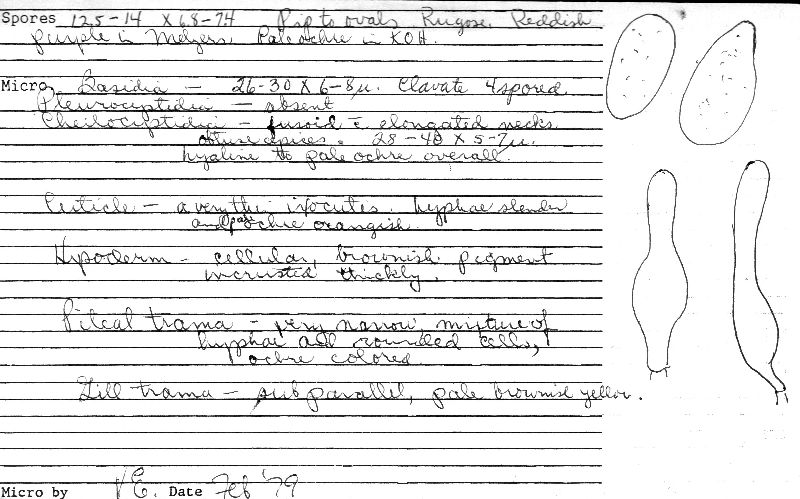 Spores 12.5-14 x 6.8-7.4 Pip to ovals Rugose. Reddish
purple in Melzers. Pale ochre in KOH.
Micro. Basidia — 26-30 x 6-8µ. Clavate 4 spored
Pleurocystidia — absent
Cheilocystidia — fusoid c̄ elongated necks
obtuse apices. 28-40 x 5-7µ.
hyaline to pale ochre overall.
Cuticle — a very thin ixocutis. hyphae slender
and pale ochre orangish.
Hypoderm — cellular, brownish pigment
incrusted thickly.
Pileal trama — very narrow, mixture of
hyphae and rounded cells,
ochre colored
Gill trama — subparallel, pale brownish yellow.
Micro by VE. Date Feb '79